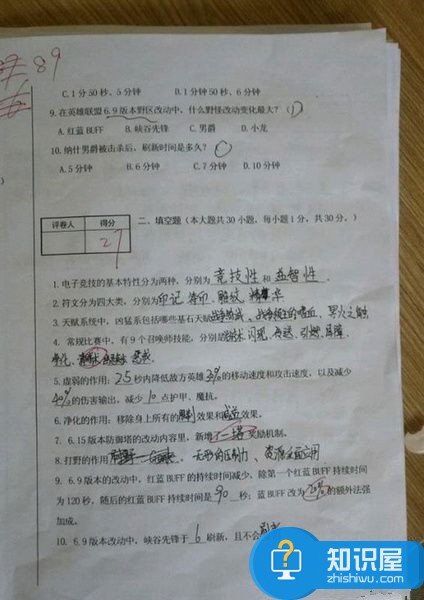 89
C.1分50秒、5分钟 D.1分钟50秒、6分钟
9.在英雄联盟6.9版本野区改动中，什么野怪改动变化最大？（）
A.红蓝BUFF B.峡谷先锋 C.男爵 D.小龙
10.纳什男爵被击杀后，刷新时间是多久？
A.5分钟 B.6分钟 C.7分钟 D.10分钟
评卷人 得分
27
二、填空题（本大题共30小题，每小题1分，共30分。）
1.电子竞技的基本特性分为两种，分别为 竞技性 和 益智性 。
2.符文分为四大类，分别为印记 符印 雕纹 精华
3.天赋系统中，凶猛系包括哪些基石天赋 战争领主的嗜血、
4.常规比赛中，有9个召唤师技能，分别是 闪现、传送、引燃、屏障、
净化、
5.虚弱的作用：2.5秒内降低敌方英雄 的移动速度和攻击速度，以及减少
40%的伤害输出，减少 10 点护甲、魔抗。
6.净化的作用：移除身上所有的 效果和 效果。
7.6.15版本防御塔的改动内容里，新增 一塔 奖励机制。
8.打野的作用 、无形的压制力、资源
9.6.9版本的改动中，红蓝BUFF的持续时间减少，除第一个红蓝BUFF持续时间
为120秒，随后的红蓝BUFF持续时间是 90 秒；蓝BUFF改为 的额外法强
加成。
10.6.9版本改动中，峡谷先锋于 6 刷新，且不会
知识屋
zhishiwu.com